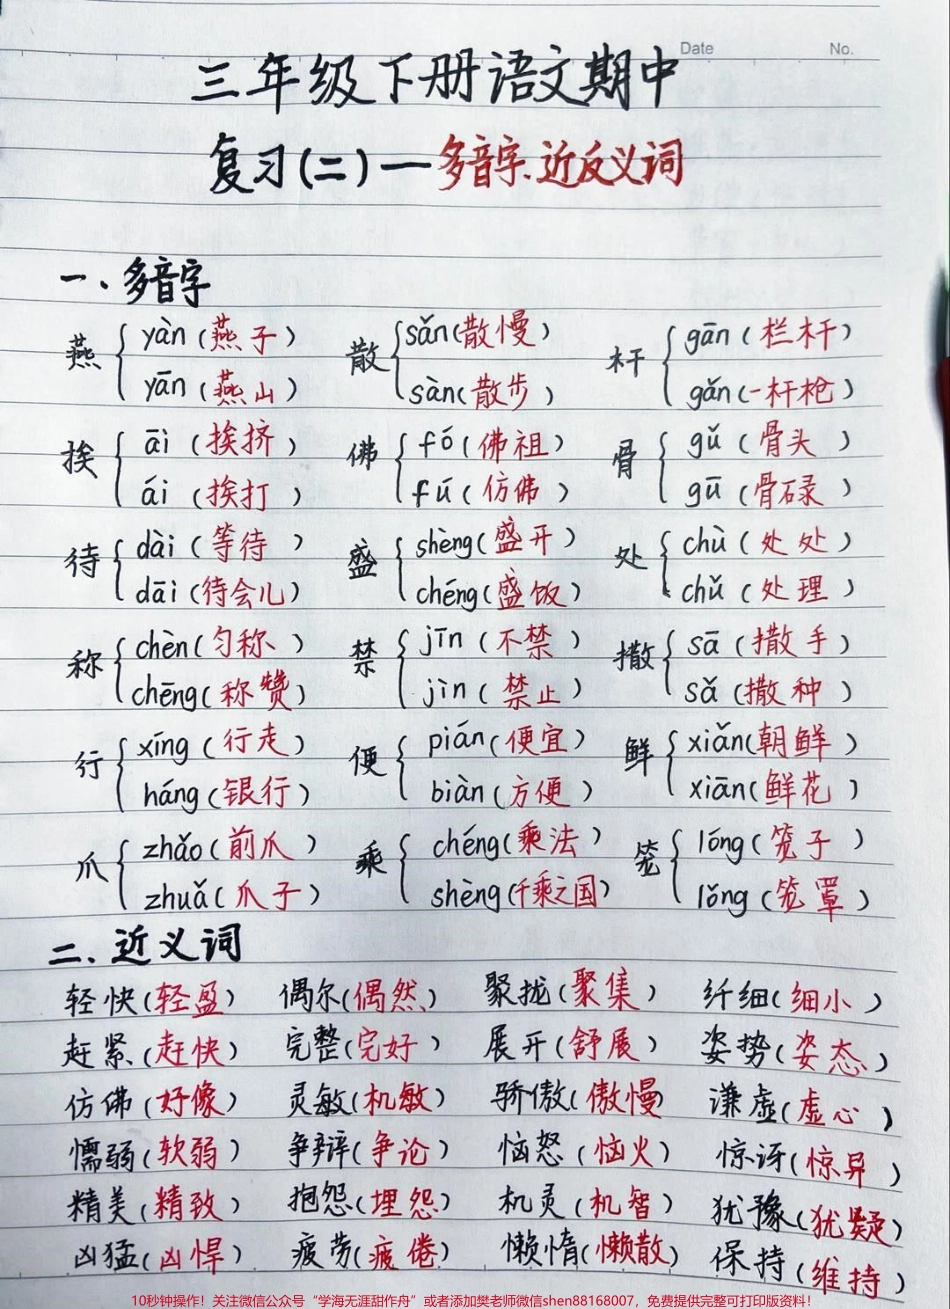 Date No.
三年级下册语文期中
复习(二)—多音字、近反义词
一、多音字
燕 { yàn (燕子) 散 { sǎn(散慢) 杆 { gān (栏杆)
yān (燕山) sàn(散步) gǎn(一杆枪)
挨 { āi (挨挤) 佛 { fó (佛祖) 骨 { gǔ (骨头)
ái (挨打) fú (仿佛) gū (骨碌)
待 { dài (等待) 盛 { shèng(盛开) 处 { chù (处处)
dāi (待会儿) chéng(盛饭) chǔ (处理)
称 { chèn(匀称) 禁 { jīn (不禁) 撒 { sā (撒手)
chēng(称赞) jìn (禁止) sǎ (撒种)
行 { xíng (行走) 便 { pián(便宜) 鲜 { xiǎn(朝鲜)
háng(银行) biàn(方便) xiān(鲜花)
爪 { zhǎo(前爪) 乘 { chéng(乘法) 笼 { lóng (笼子)
zhuǎ(爪子) shèng(千乘之国) lǒng (笼罩)
二、近义词
轻快(轻盈) 偶尔(偶然) 聚拢(聚集) 纤细(细小)
赶紧(赶快) 完整(完好) 展开(舒展) 姿势(姿态)
仿佛(好像) 灵敏(机敏) 骄傲(傲慢) 谦虚(虚心)
懦弱(软弱) 争辩(争论) 恼怒(恼火) 惊讶(惊异)
精美(精致) 抱怨(埋怨) 机灵(机智) 犹豫(犹疑)
凶猛(凶悍) 疲劳(疲倦) 懒惰(懒散) 保持(维持)
10秒钟操作！关注微信公众号“学海无涯甜作舟”或者添加樊老师微信shen88168007，免费提供完整可打印版资料！